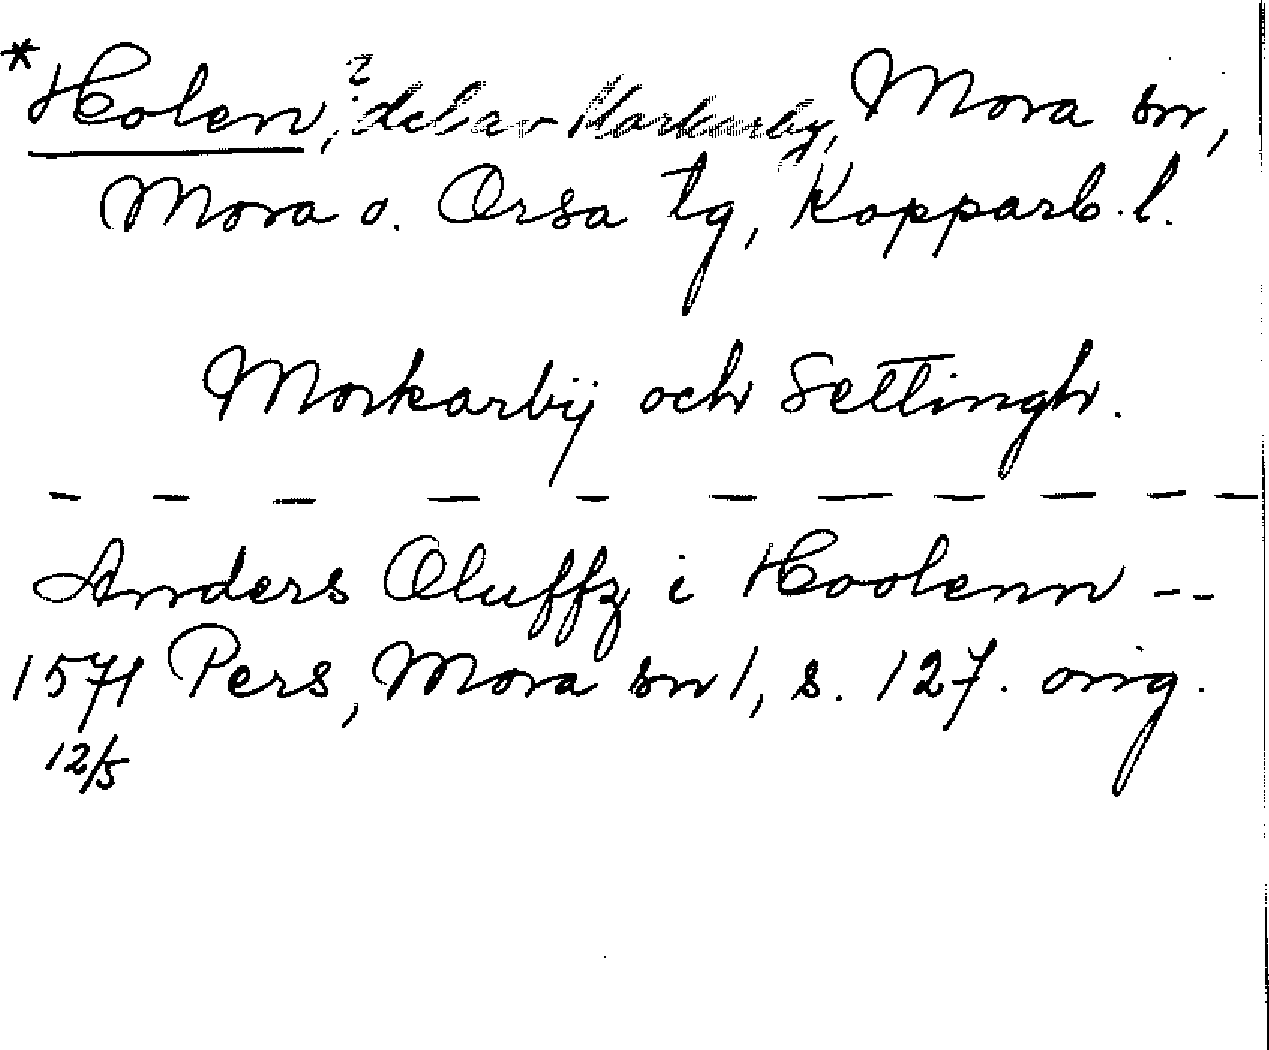 *Holen, ? del av Morkarby, Mora sn,
Mora o. Orsa tg, Kopparb. l.
Morkarbÿ och Settingh.
– – – – – – – – – – –
Anders Oluffz i Hoolenn --
1571 Pers, Mora sn 1, s. 127. orig.
12/5